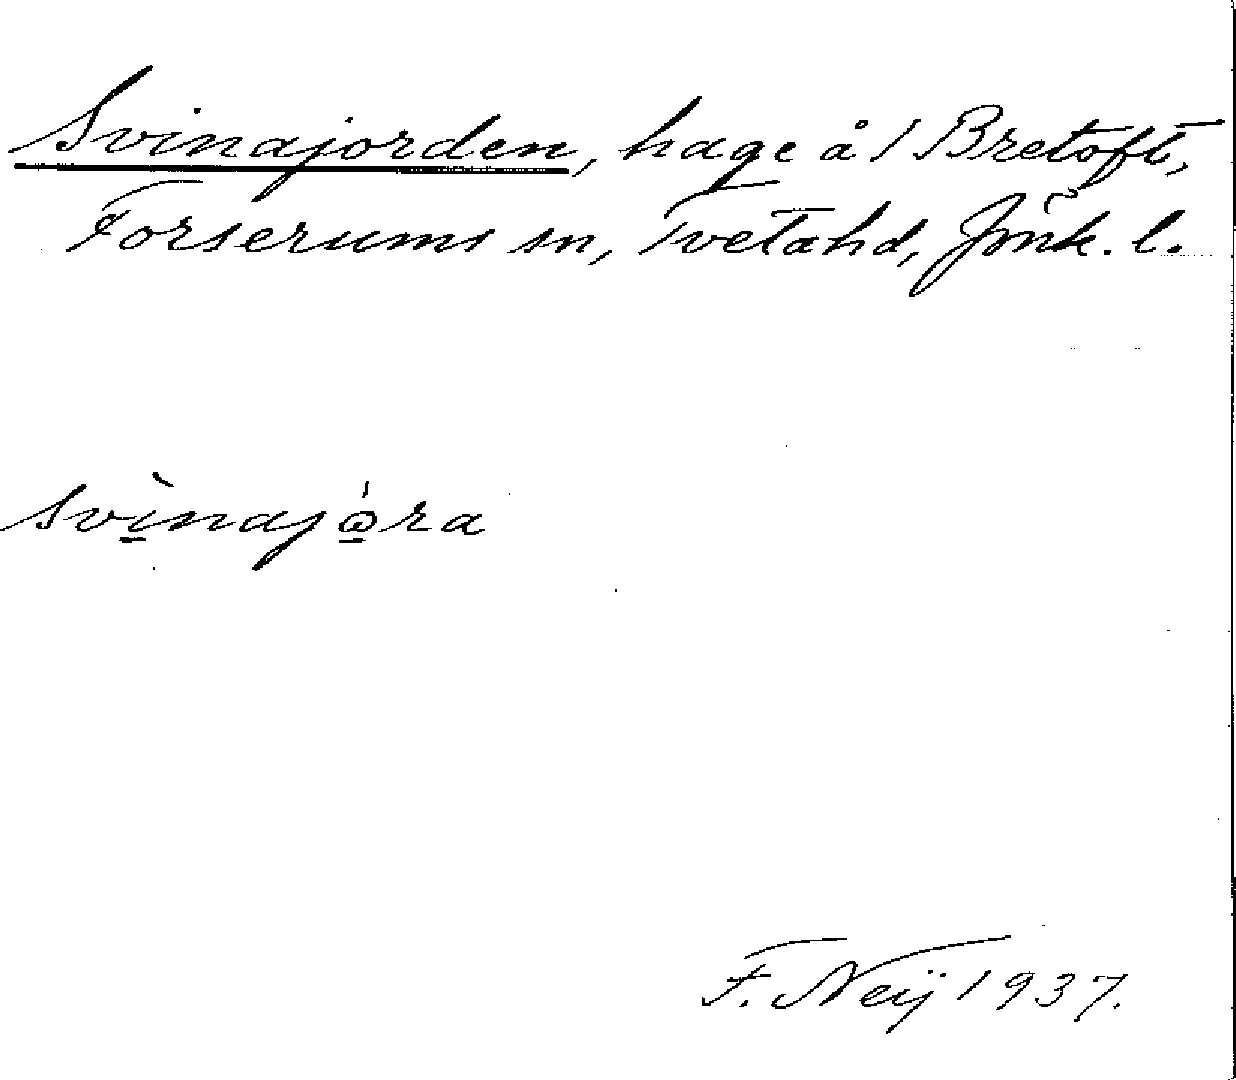 Svinajorden, hage å 1 Bretoft,
Forserums sn, Tveta hd, Jönk. l.
svìnajǫ́ra
F. Neij 1937.